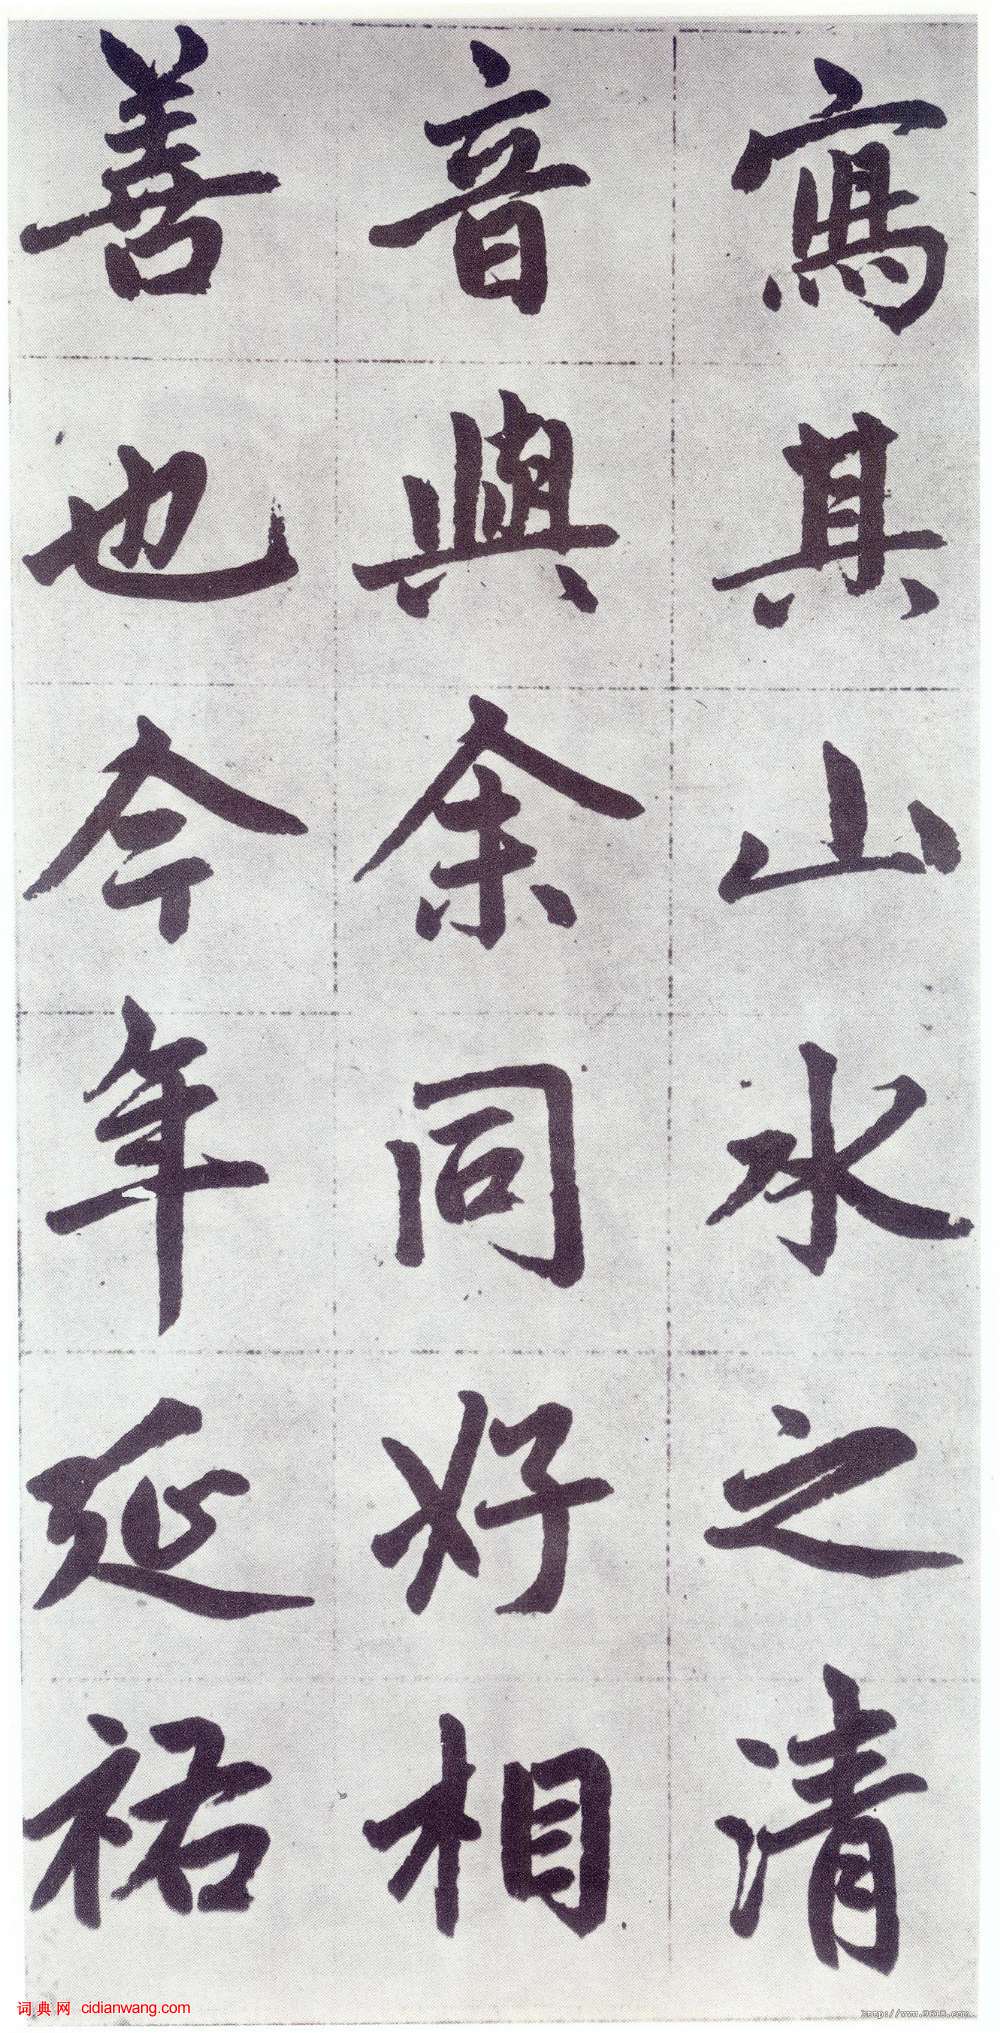 寫其山水之清
音與余同好相
善也今年延祐
词典网 cidianwang.com
http://www.9610.com